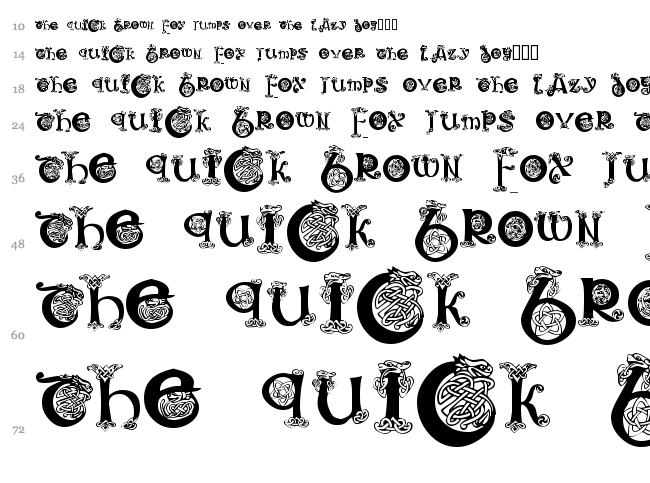 10 The quick brown fox jumps over the lazy dog□□□
14 The quick brown fox jumps over the lazy dog□□□
18 The quick brown fox jumps over the lazy dog
24 The quick brown fox jumps over t
36 The quick brown fox ju
48 The quick brown
60 The quick bro
72 The quick b